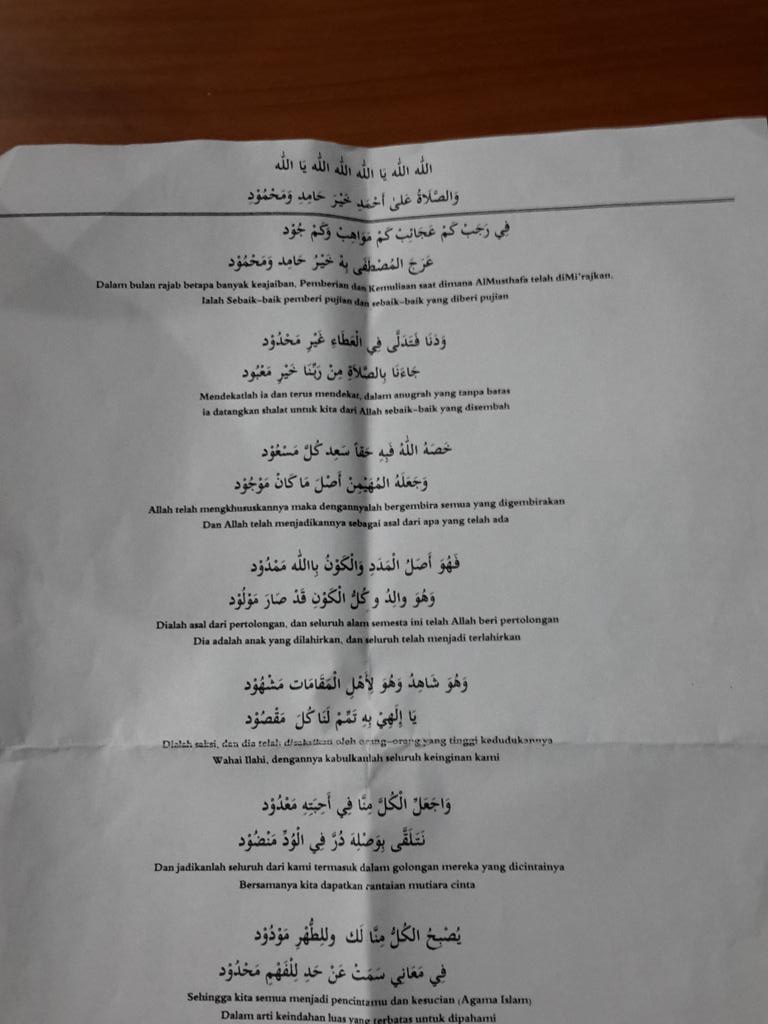 الله الله يَا الله الله الله يَا الله
وَالصَّلَاةُ عَلىٰ أَحْمَدِ خَيْرَ حَامِدِ وَمَحْمُوْدِ
فِي رَجَبْ كَمْ عَجَائِبْ كَمْ مَوَاهِبْ وَكَمْ جُوْد
عَرَجَ المُصْطَفَى بِهْ خَيْرُ حَامِد وَمَحْمُوْد
Dalam bulan rajab betapa banyak keajaiban, Pemberian dan Kemuliaan saat dimana AlMusthafa telah diMi'rajkan,
Ialah Sebaik-baik pemberi pujian dan sebaik-baik yang diberi pujian
وَدَنَا فَتَدَلَّى فِي الْعَطَاءِ غَيْرِ مَحْدُوْد
جَاءَنَا بِالصَّلاَةِ مِنْ رَبِّنَا خَيْرِ مَعْبُود
Mendekatlah ia dan terus mendekat, dalam anugrah yang tanpa batas
ia datangkan shalat untuk kita dari Allah sebaik-baik yang disembah
خَصَهُ اللهُ فَبِهِ حَقاً سَعِد كُلَّ مَسْعُوْد
وَجَعَلَهُ المُهَيْمِنْ أَصْلَ مَا كَانْ مَوْجُوْد
Allah telah mengkhususkannya maka dengannyalah bergembira semua yang digembirakan
Dan Allah telah menjadikannya sebagai asal dari apa yang telah ada
فَهُوَ أَصَلُ الْمَدَدِ وَالْكَوْنُ بِاالله مَمْدُوْد
وَهُوَ والِدُ وكُلُّ الْكَوْنِ قَدْ صَارَ مَوْلُوْد
Dialah asal dari pertolongan, dan seluruh alam semesta ini telah Allah beri pertolongan
Dia adalah anak yang dilahirkan, dan seluruh telah menjadi terlahirkan
وَهُوَ شَاهِدُ وَهُوَ لِأَهْلِ الْمَقَامَات مَشْهُوْد
يَا إِلَهِيْ بِهِ تَمِّمْ لَنَا كُلَ مَقْصُوْد
Dialah saksi, dan dia telah disaksikan oleh orang-orang yang tinggi kedudukannya
Wahai Ilahi, dengannya kabulkanlah seluruh keinginan kami
وَاجَعَلِ الْكُلَّ مِنَّا فِي أَحِبَتِهِ مَعْدُوْد
نَتَلَقَّى بِوَصْلِهَ دُرَّ فِي الْوُدِّ مَنْضُوْد
Dan jadikanlah seluruh dari kami termasuk dalam golongan mereka yang dicintainya
Bersamanya kita dapatkan rantaian mutiara cinta
يُصْبِحُ الكُلُّ مِنَّا لَك وللِطُّهْرِ مَوْدُوْد
فِي مَعَانِي سَمَتْ عَنْ حَدِ لِلْفَهْمِ مَحْدُوْد
Sehingga kita semua menjadi pencintamu dan kesucian (Agama Islam)
Dalam arti keindahan luas yang terbatas untuk dipahami